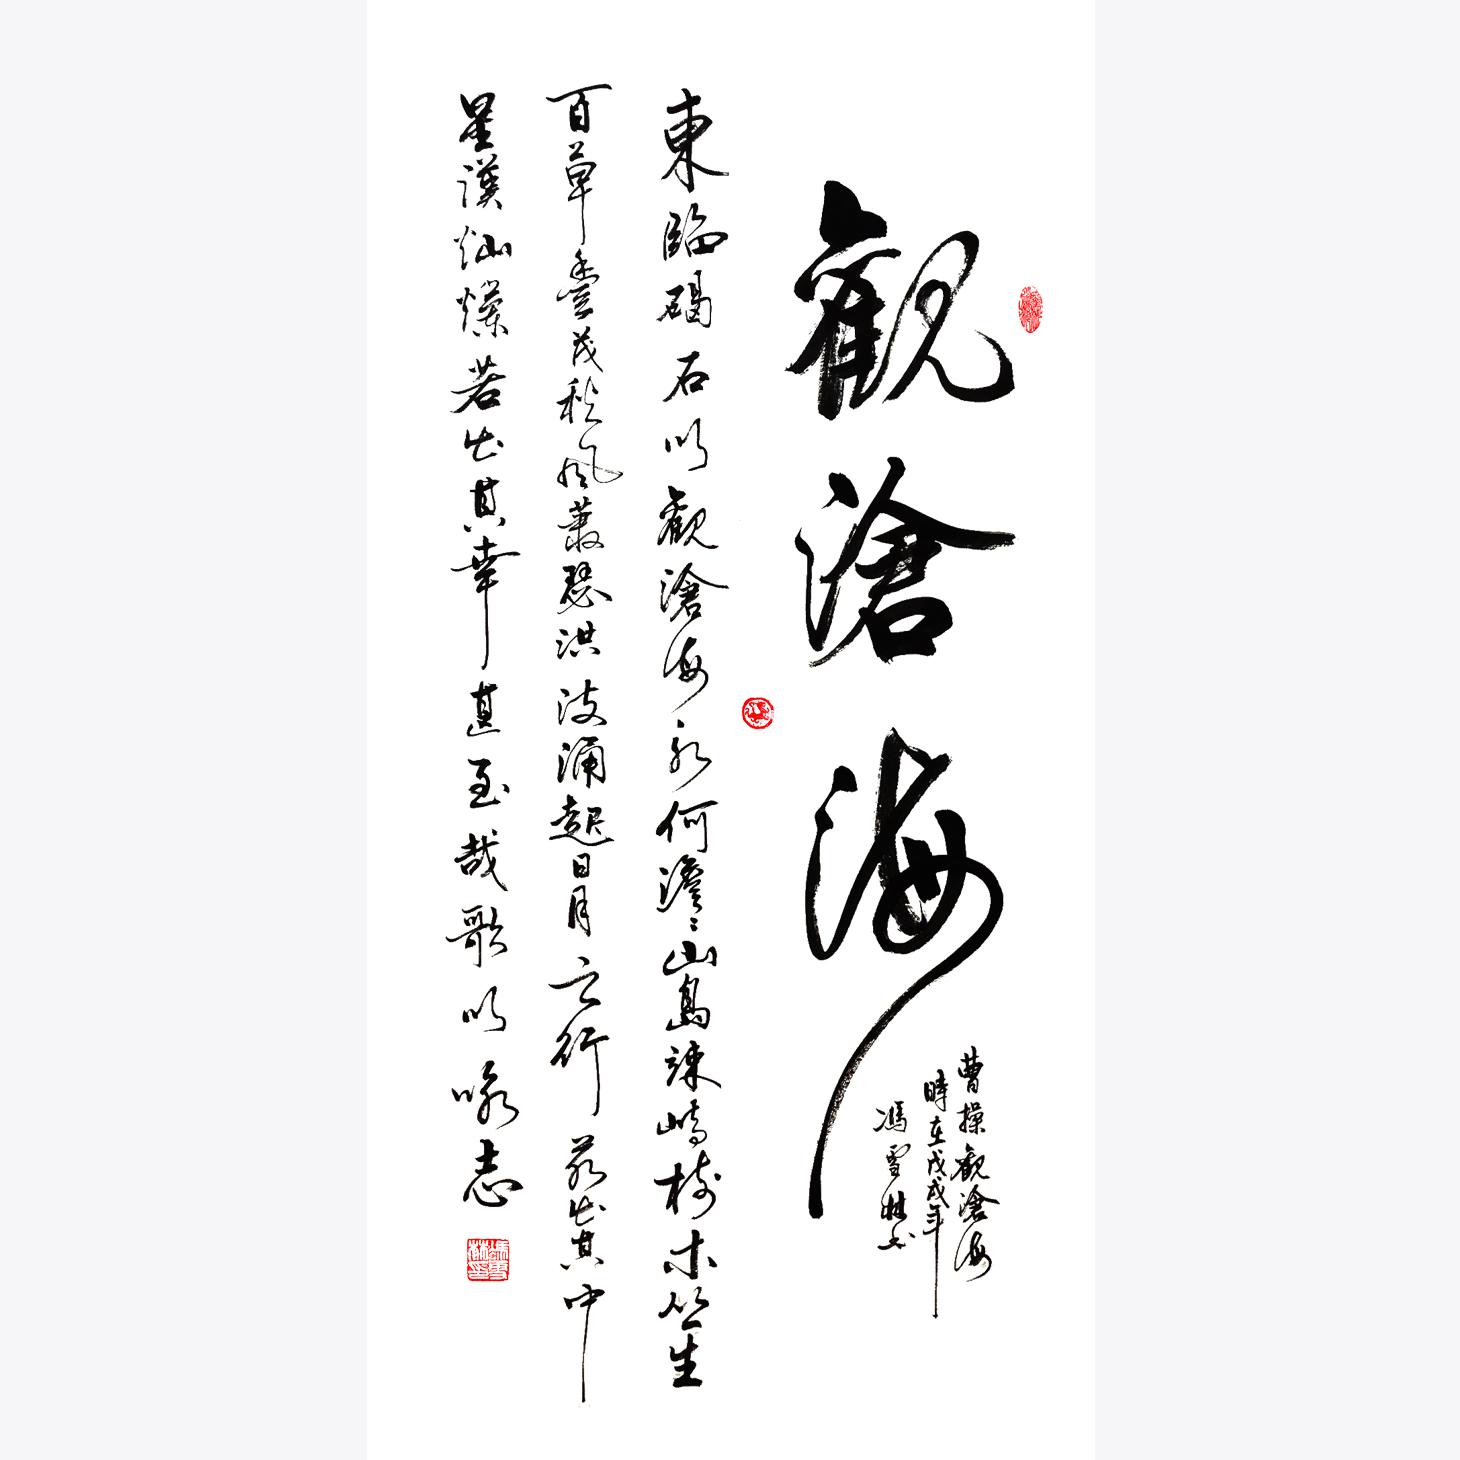 觀滄海
曹操觀滄海
時在戊戌年
馮雪林书
東臨碣石以觀滄海水何澹〻山島竦峙樹木丛生
百草豐茂秋風蕭瑟洪波涌起日月之行若出其中
星漢灿爛若出其幸甚至哉歌以咏志